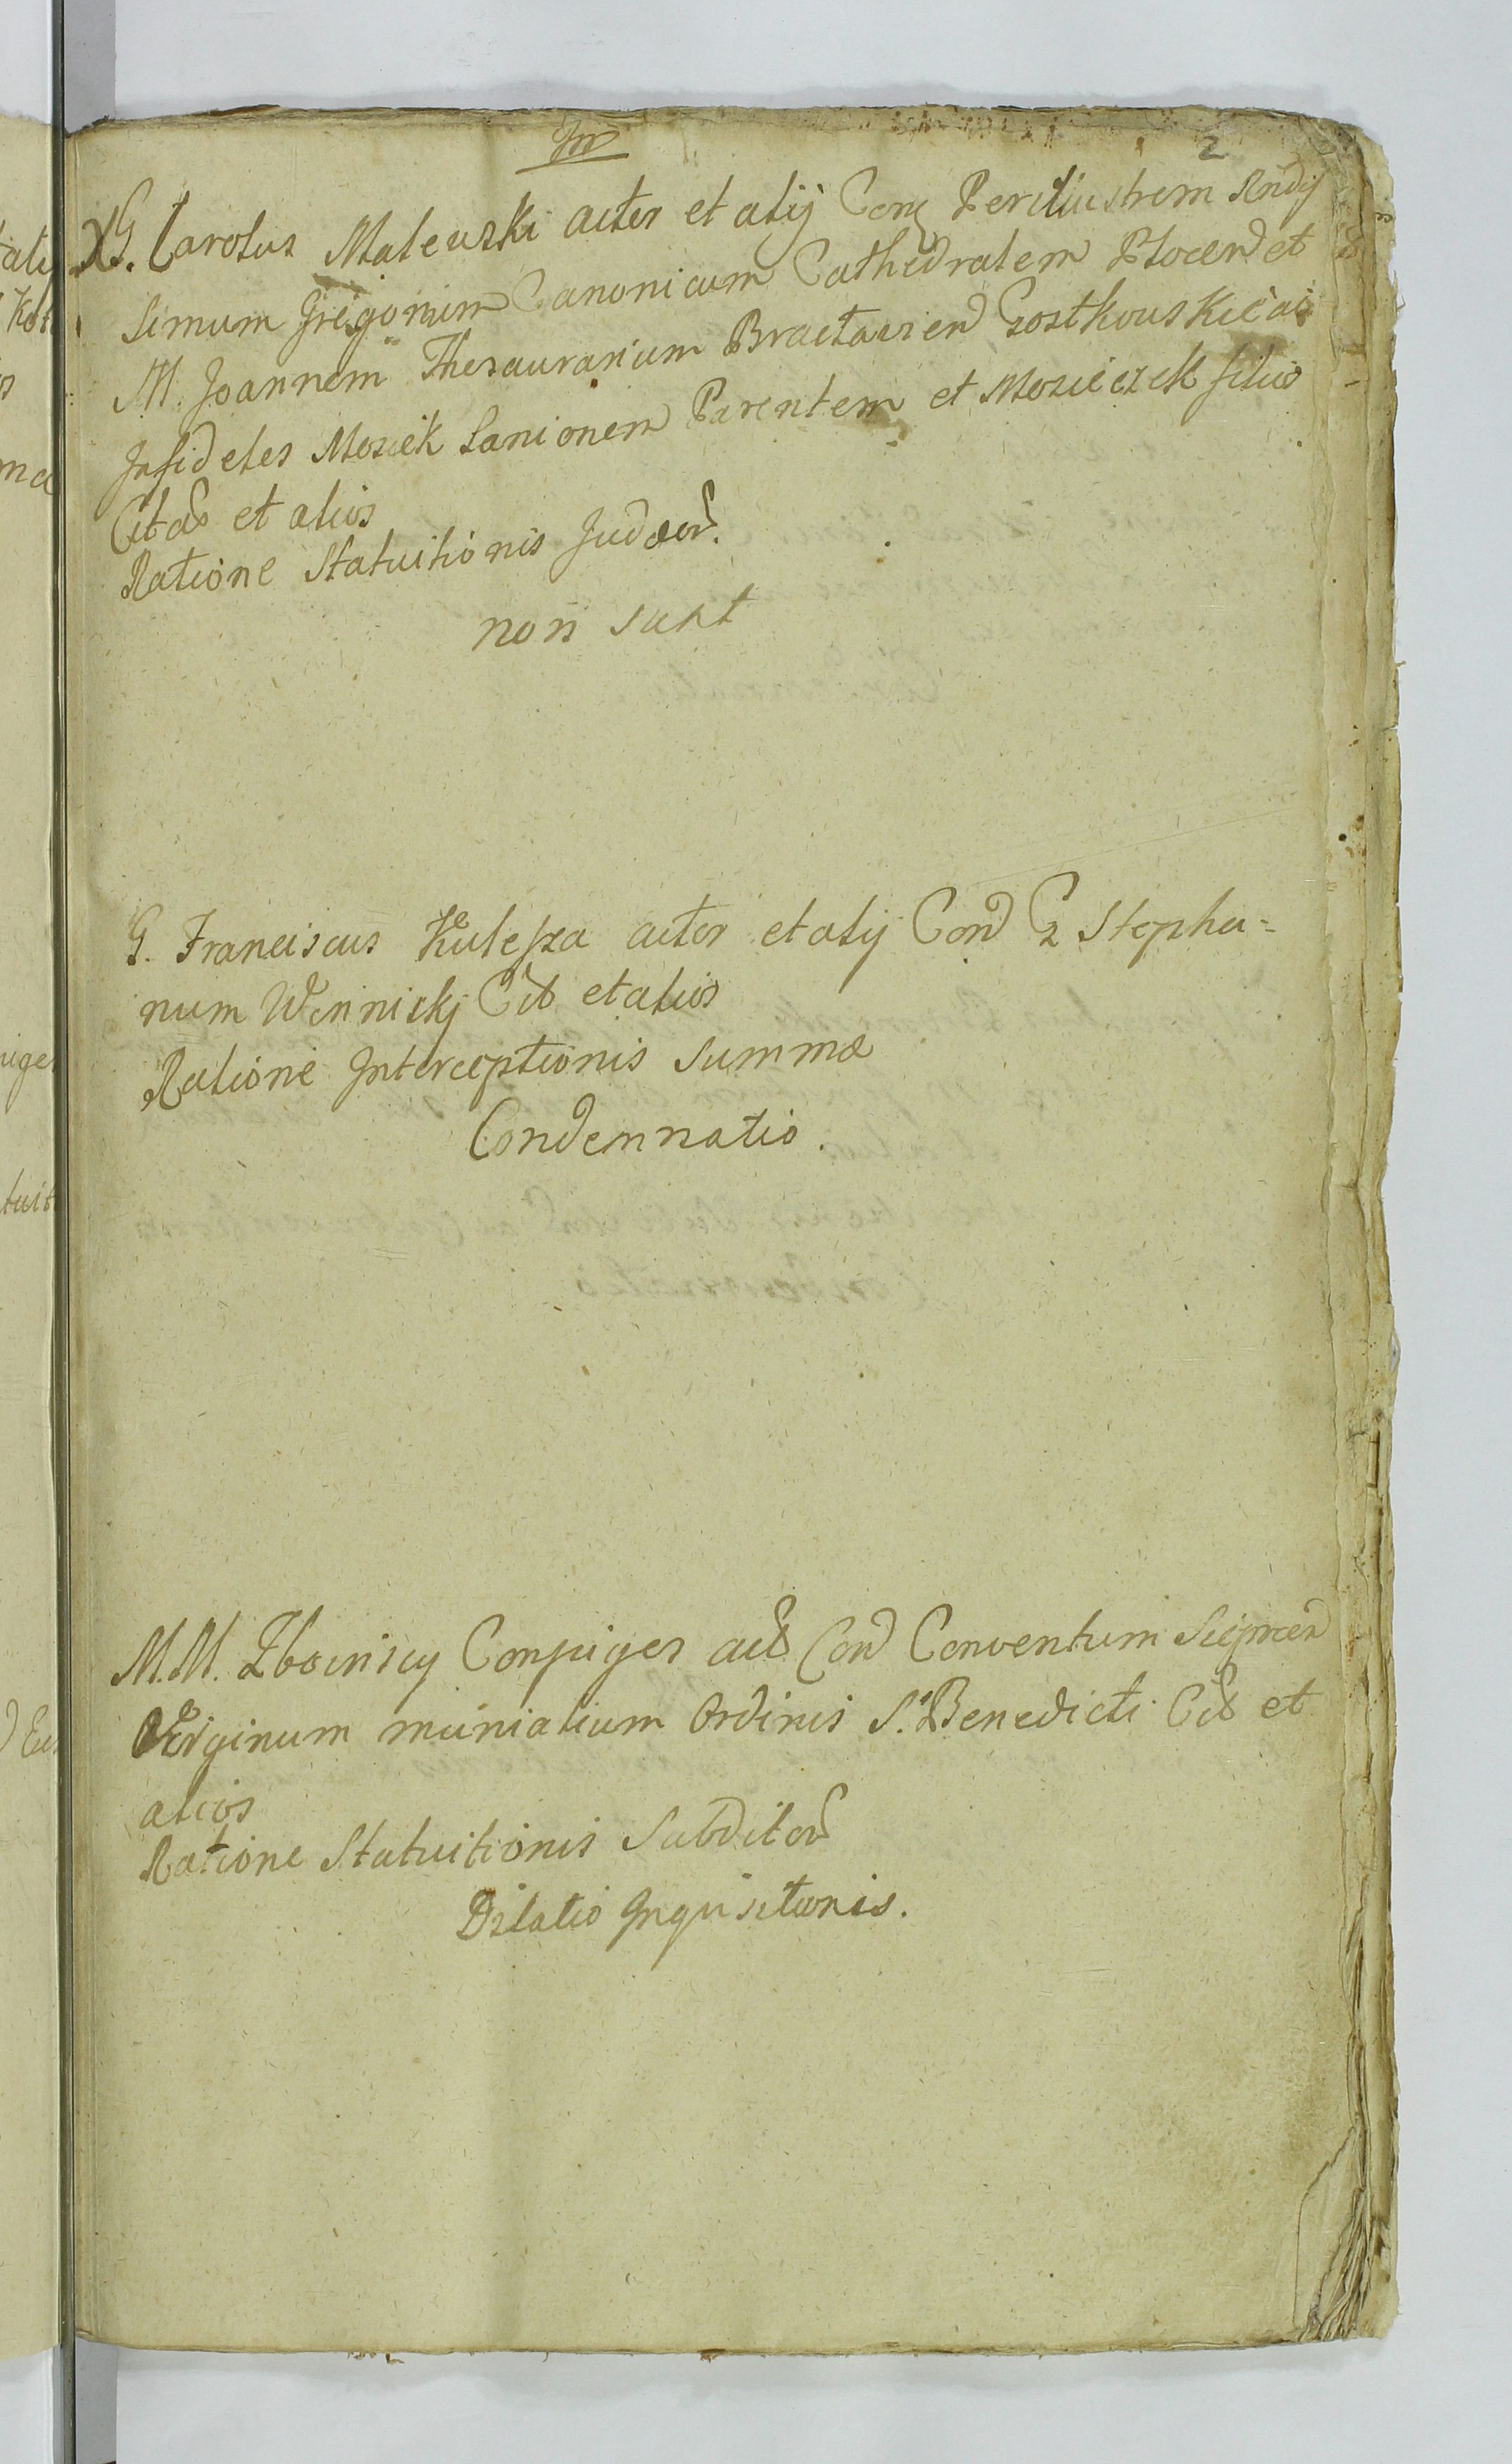 2
G. Carolus Malewski actor et alij Con Perillustrem Rndis
simum Gregorium Canonicum Cathedralem Plocen et
M. Joannem Thesaurarium Braclavien Gostkowskie ac
Infideles Mosiek Lanionem Parentem et Mosieczek filios
Citos et alios
Ratione Statuitionis Judæor.
non sunt
G. Franciscus Kulesza actor et alij Con G Stepha=
num Winnickj Cit et alios
Ratione Interceptionis Summæ
Condemnatio.
M.M. Zboinscy Conjuges act Con Conventum Sieprcen
Virginum monialium Ordinis S. Benedicti Cit et
alios
Ratione Statuitionis Subditor
Dilatio Inquisitionis.